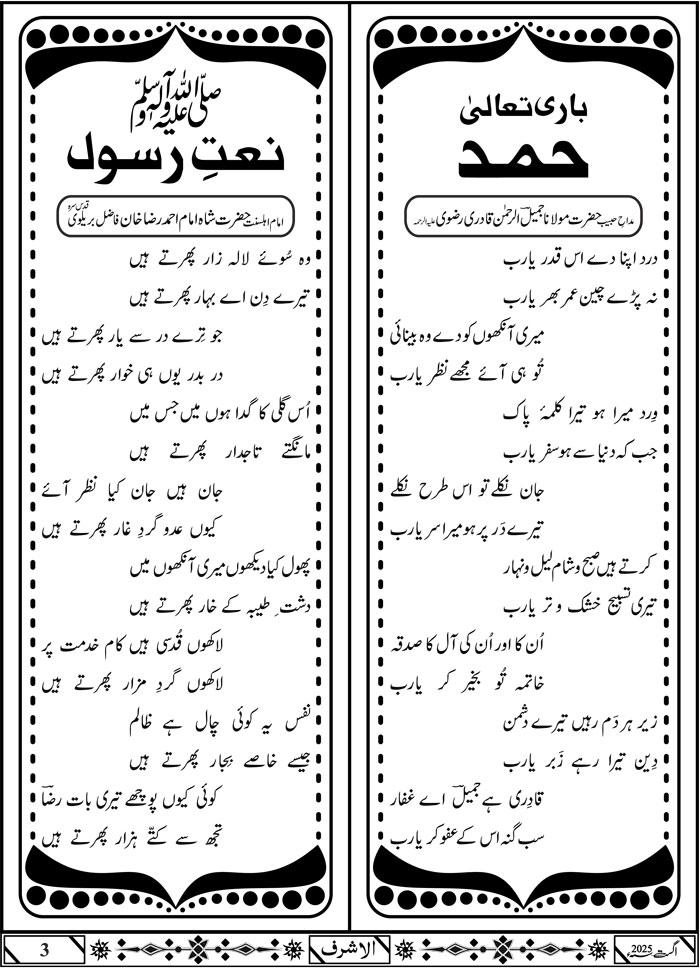 باری تعالیٰ
حمد
مداحِ حبیب حضرت مولانا جمیلؔ الرحمٰن قادری رضوی علیہ الرحمہ
درد اپنا دے اس قدر یارب
نہ پڑے چین عمر بھر یارب
میری آنکھوں کو دے وہ بینائی
تُو ہی آئے مجھے نظر یارب
وِرد میرا ہو تیرا کلمۂ پاک
جب کہ دنیا سے ہو سفر یارب
جان نکلے تو اس طرح نکلے
تیرے دَر پر ہو میرا سر یارب
کرتے ہیں صبح و شام لیل و نہار
تیری تسبیح خشک و تر یارب
اُن کا اور اُن کی آل کا صدقہ
خاتمہ تُو بخیر کر یارب
زیر ہر دَم رہیں تیرے دشمن
دِین تیرا رہے زَبر یارب
قادِری ہے جمیلؔ اے غفار
سب گنہ اس کے عفو کر یارب
صلی اللہ علیہ وآلہ وسلم
نعتِ رسول
امام اہلسنت حضرت شاہ امام احمد رضا خان فاضل بریلوی قدس سرہ
وہ سُوئے لالہ زار پھرتے ہیں
تیرے دِن اے بہار پھرتے ہیں
جو تِرے در سے یار پھرتے ہیں
در بدر یوں ہی خوار پھرتے ہیں
اُس گلی کا گدا ہوں میں جس میں
مانگتے تاجدار پھرتے ہیں
جان ہیں جان کیا نظر آئے
کیوں عدو گردِ غار پھرتے ہیں
پھول کیا دیکھوں میری آنکھوں میں
دشتِ طیبہ کے خار پھرتے ہیں
لاکھوں قُدسی ہیں کام خدمت پر
لاکھوں گردِ مزار پھرتے ہیں
نفس یہ کوئی چال ہے ظالم
جیسے خاصے بجار پھرتے ہیں
کوئی کیوں پوچھے تیری بات رضاؔ
تجھ سے کتّے ہزار پھرتے ہیں
اگست 2025ء
الاشرف
3